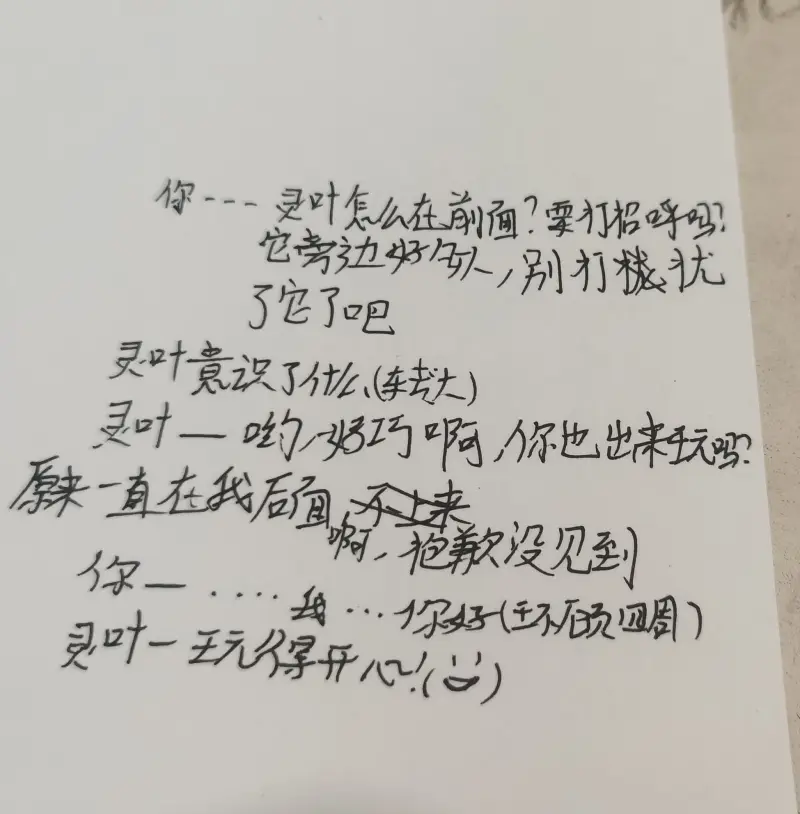 你---灵叶怎么在前面?要打招呼吗?
它旁边好多人,别打扰
了它了吧
灵叶意识了什么(转头)
灵叶—哟,好巧啊,你也出来玩吗?
原来一直在我后面,不上来
啊,抱歉没见到
你—····我···你好(环顾四周)
灵叶—玩得开心!( )